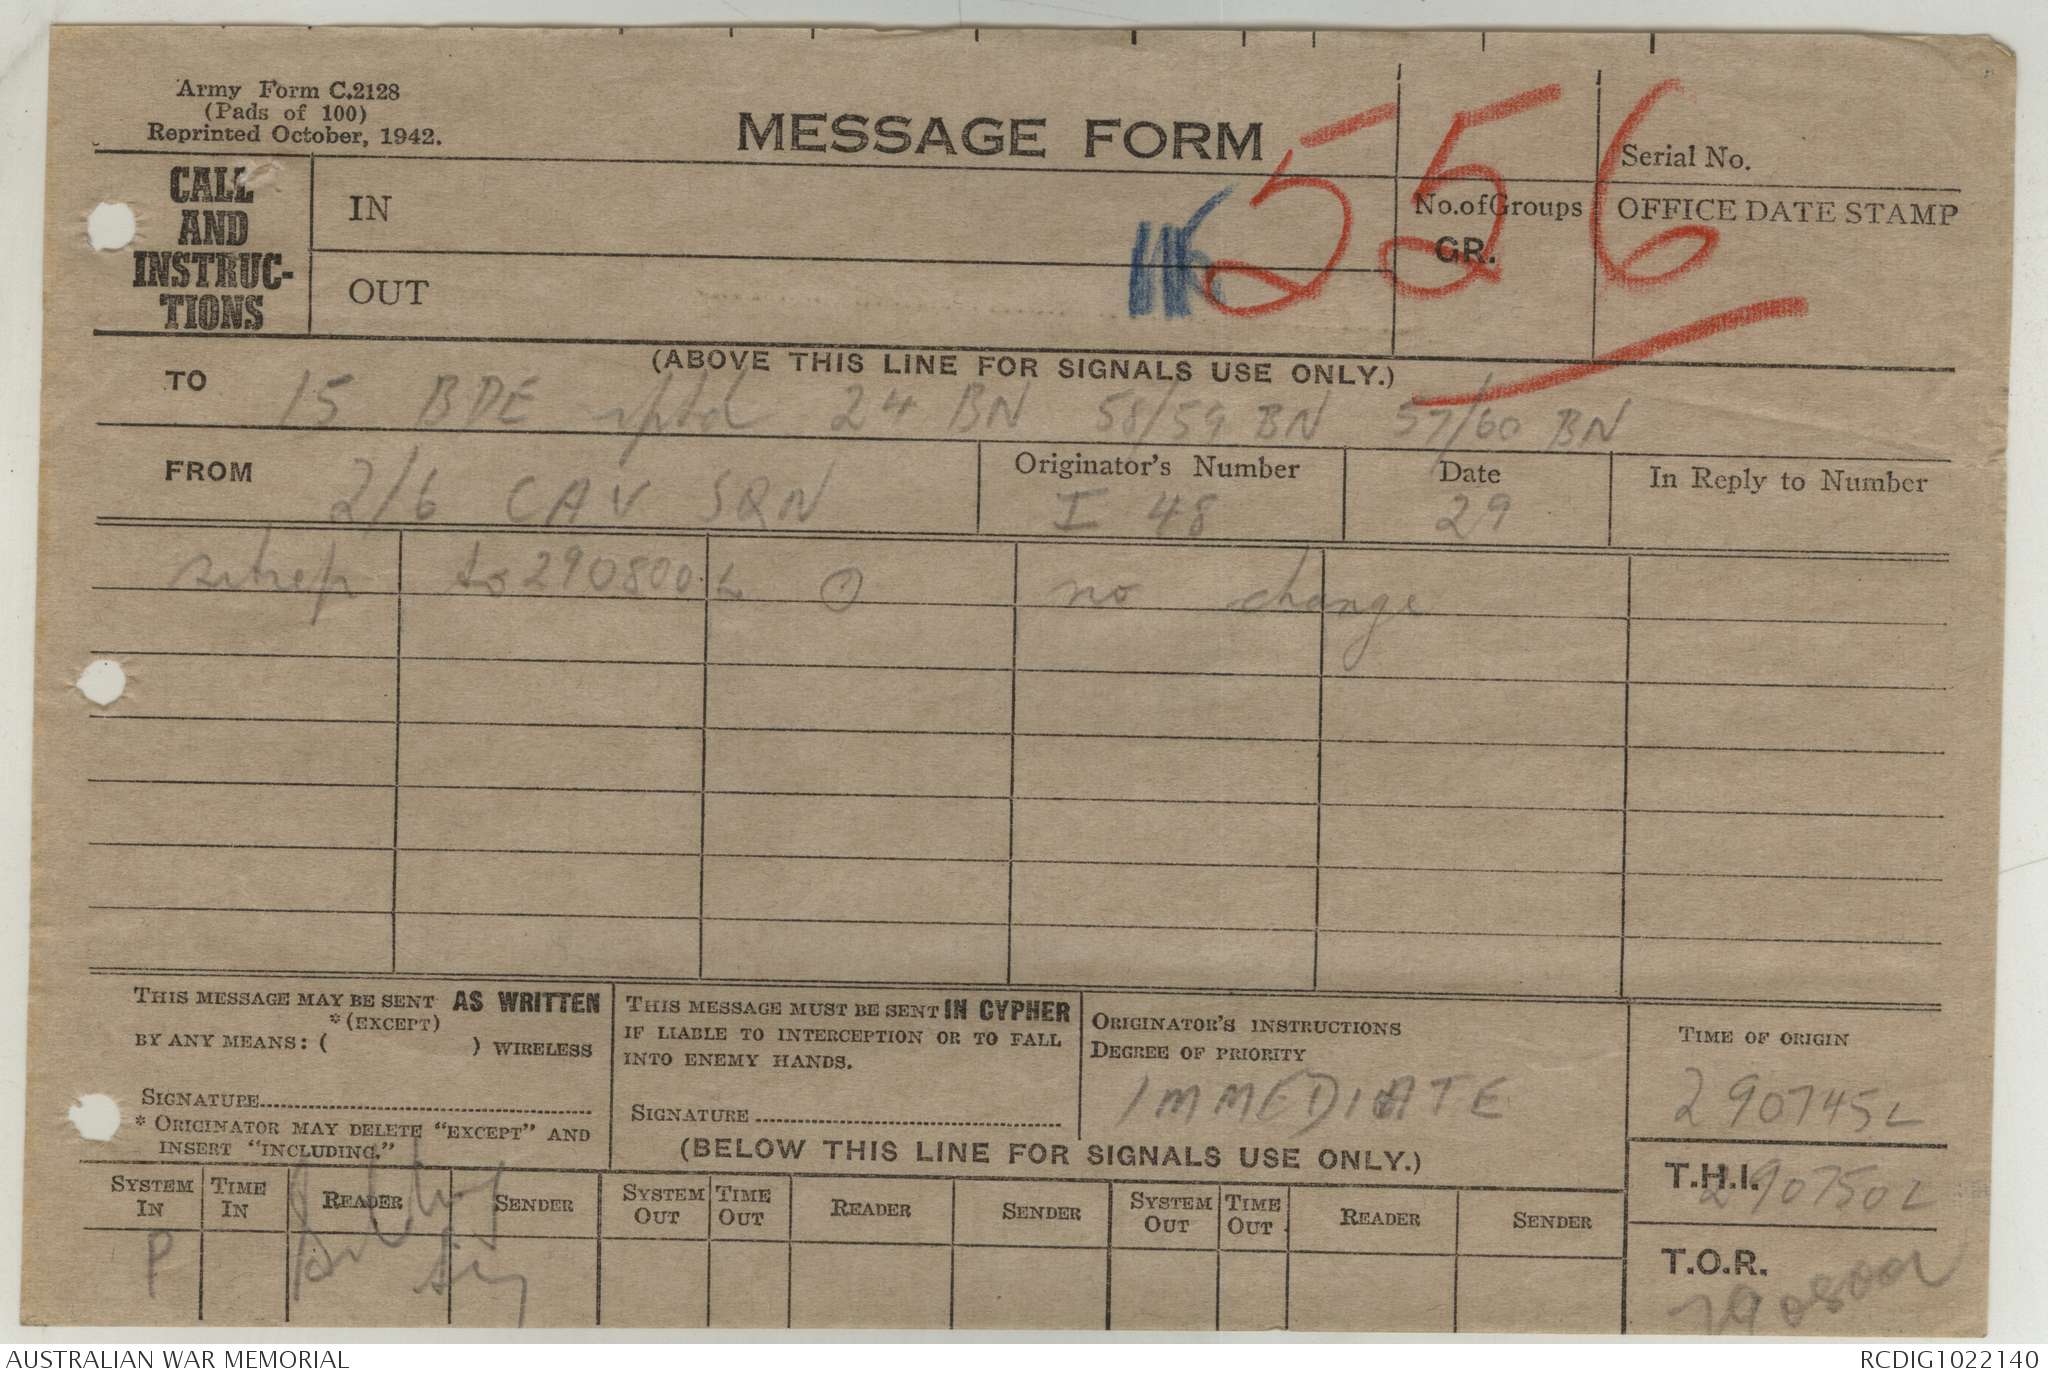 Army Form C.2128
(Pads of 100)
Reprinted October, 1942.
MESSAGE FORM
556
Serial No.
CALL
AND
INSTRUC-
TIONS
IN
OUT
No. of Groups
GR.
OFFICE DATE STAMP
(ABOVE THIS LINE FOR SIGNALS USE ONLY.)
TO 15 BDE rptd 24 BN 58/59 BN 57/60 BN
FROM 2/6 CAV SQN
Originator's Number
I 48
Date
29
In Reply to Number
sitrep to 290800 L ⊙ no change
THIS MESSAGE MAY BE SENT AS WRITTEN
*(EXCEPT)
BY ANY MEANS: ( ) WIRELESS
SIGNATURE
* ORIGINATOR MAY DELETE "EXCEPT" AND
INSERT "INCLUDING."
THIS MESSAGE MUST BE SENT IN CYPHER
IF LIABLE TO INTERCEPTION OR TO FALL
INTO ENEMY HANDS.
SIGNATURE
ORIGINATOR'S INSTRUCTIONS
DEGREE OF PRIORITY
IMMEDIATE
TIME OF ORIGIN
290745L
(BELOW THIS LINE FOR SIGNALS USE ONLY.)
T.H.I.
290750L
T.O.R.
290800L
SYSTEM IN
TIME IN
READER
SENDER
SYSTEM OUT
TIME OUT
READER
SENDER
SYSTEM OUT
TIME OUT
READER
SENDER
P
AUSTRALIAN WAR MEMORIAL
RCDIG1022140